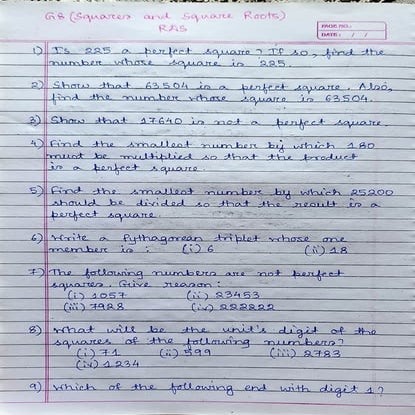 G8 (Squares and Square Roots)
RAS
PAGE NO.:
DATE: / /
1) Is 225 a perfect square? If so, find the
number whose square is 225.
2) Show that 63504 is a perfect square. Also,
find the number whose square is 63504.
3) Show that 17640 is not a perfect square.
4) Find the smallest number by which 180
must be multiplied so that the product
is a perfect square.
5) Find the smallest number by which 25200
should be divided so that the result is a
perfect square.
6) Write a Pythagorean triplet whose one
member is : (i) 6 (ii) 18
7) The following numbers are not perfect
squares. Give reason :
(i) 1057 (ii) 23453
(iii) 7928 (iv) 222222
8) What will be the unit's digit of the
squares of the following numbers?
(i) 71 (ii) 599 (iii) 2783
(iv) 1234
9) Which of the following end with digit 1?